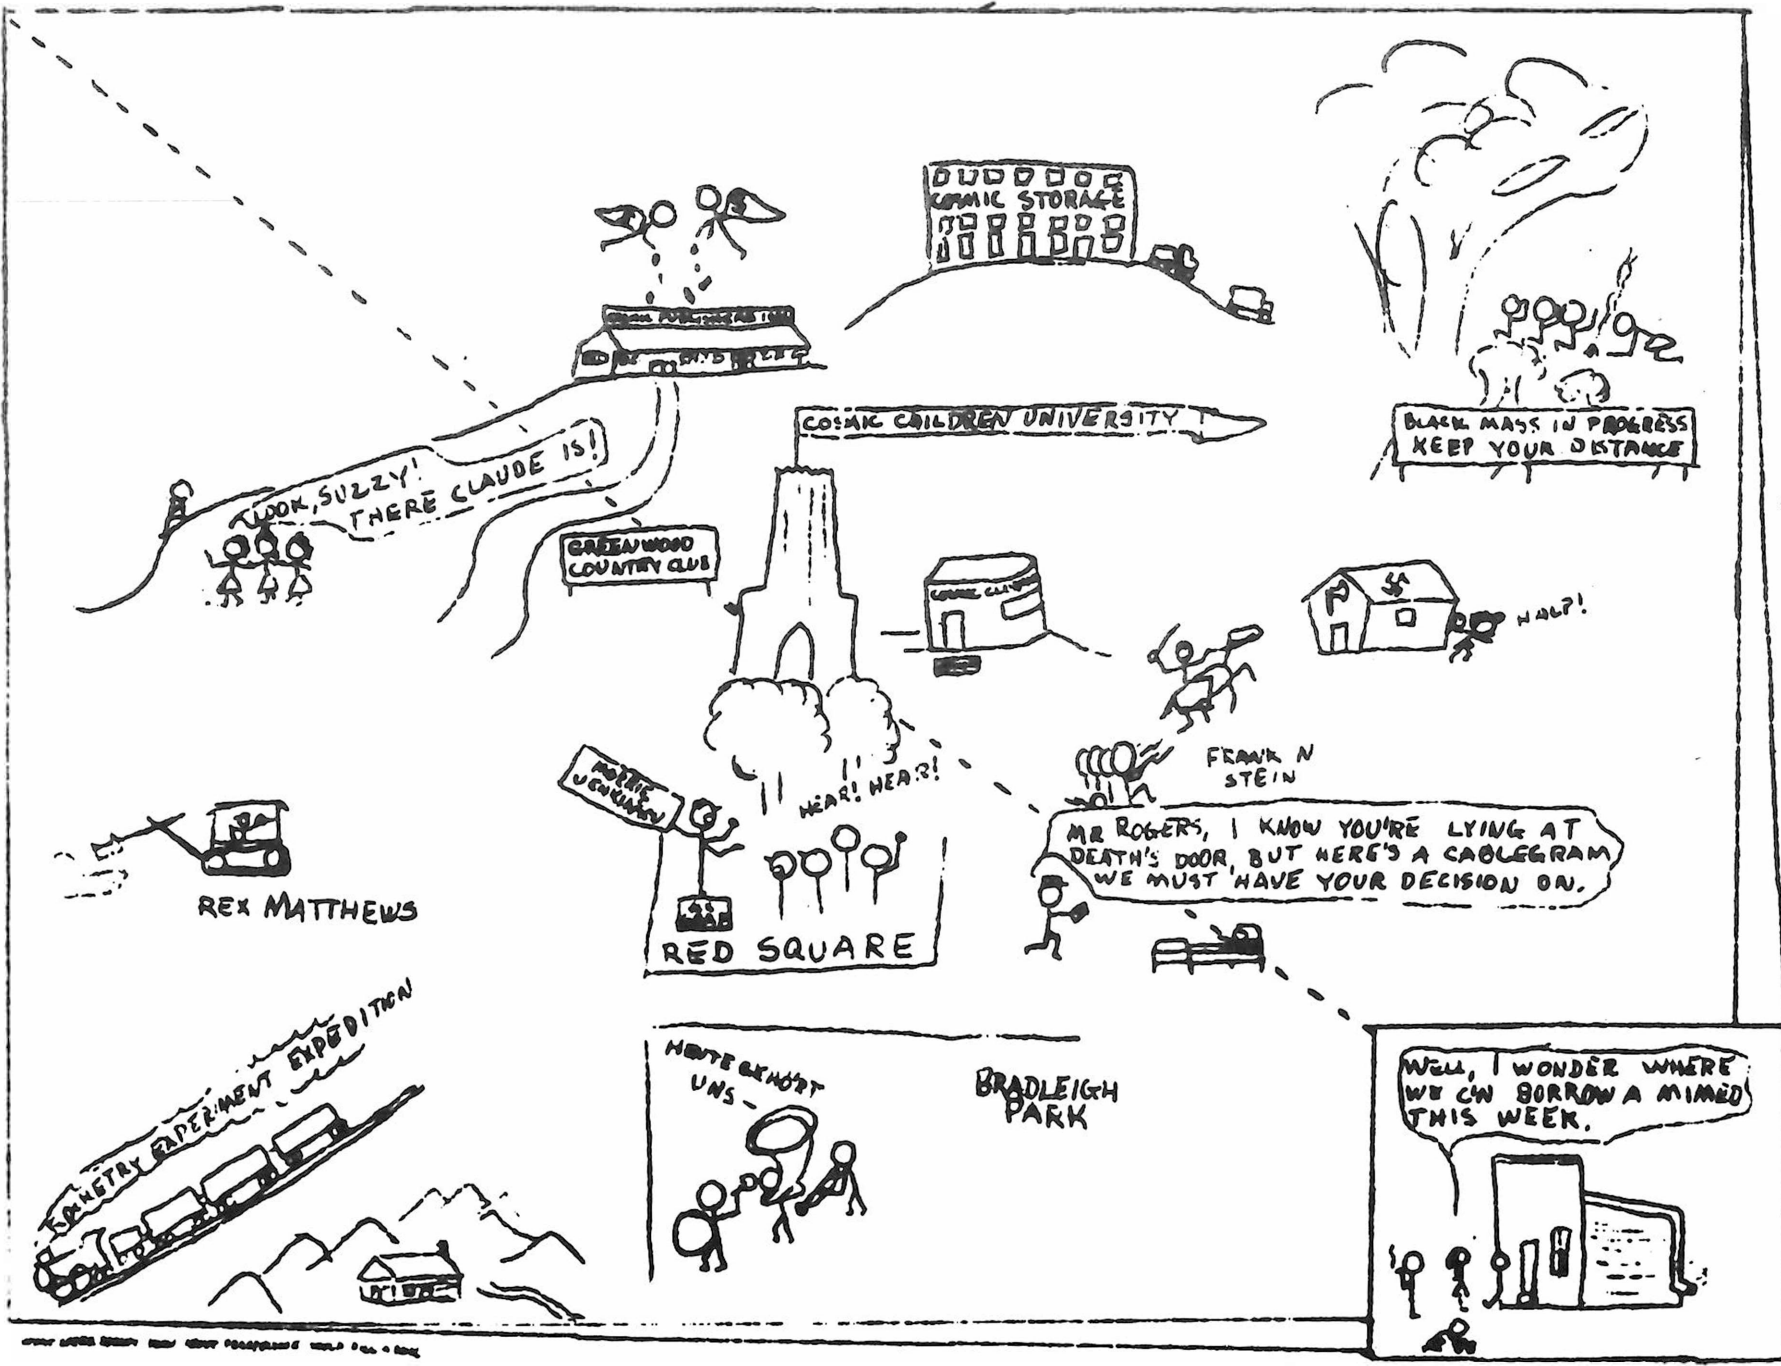 COSMIC STORAGE
COSMIC CHILDREN UNIVERSITY
BLACK MASS IN PROGRESS
KEEP YOUR DISTANCE
LOOK, SUZZY!
THERE CLAUDE IS!
GREENWOOD
COUNTRY CLUB
HALP!
FRANK N
STEIN
HEAR! HEAR!
MORRIE
JENKINSON
MR ROGERS, I KNOW YOU'RE LYING AT
DEATH'S DOOR, BUT HERE'S A CABLEGRAM
WE MUST HAVE YOUR DECISION ON.
REX MATTHEWS
RED SQUARE
EXPERIMENT EXPEDITION
HEUTE GEHÖRT
UNS
BRADLEIGH
PARK
WELL, I WONDER WHERE
WE C'N BORROW A MIMEO
THIS WEEK.